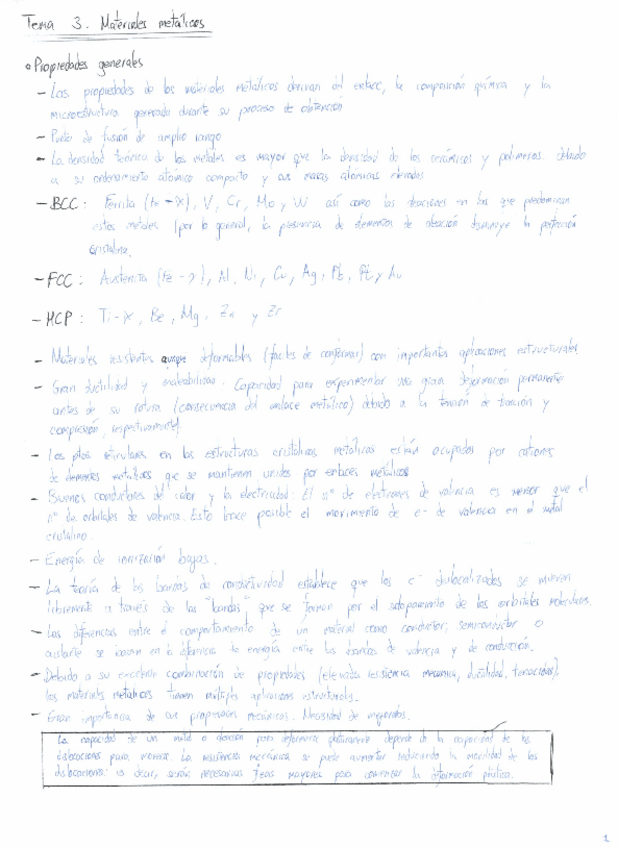 Tema 3. Materiales metálicos
Propiedades generales
- Las propiedades de los materiales metálicos derivan del enlace, la composición química y la
microestructura generada durante su proceso de obtención
- Punto de fusión de amplio rango
- La densidad teórica de los metales es mayor que la densidad de los cerámicos y polímeros debido
a su ordenamiento atómico compacto y sus masas atómicas elevadas
- BCC: Ferrita (Fe-α), V, Cr, Mo y W así como las aleaciones en las que predominan
estos metales (por lo general, la presencia de elementos de aleación disminuye la perfección
cristalina.
- FCC: Austenita (Fe-γ), Al, Ni, Cu, Ag, Pt y Au
- HCP: Ti-α, Be, Mg, Zn y Zr
- Materiales resistentes aunque deformables (fáciles de conformar) con importantes aplicaciones estructurales.
- Gran ductilidad y maleabilidad. Capacidad para experimentar una gran deformación permanente
antes de su rotura (consecuencia del enlace metálico) debido a la tensión de tracción y
compresión, respectivamente).
- Los ptos reticulares en las estructuras cristalinas metálicas están ocupados por cationes
de elementos metálicos que se mantienen unidos por enlaces metálicos
- Buenos conductores del calor y la electricidad: El nº de electrones de valencia es menor que el
nº de orbitales de valencia. Esto hace posible el movimiento de e- de valencia en el metal
cristalino.
- Energía de ionización bajas.
- La teoría de las bandas de conductividad establece que los e- deslocalizados se mueven
libremente a través de las "bandas" que se forman por el solapamiento de los orbitales moleculares.
- Las diferencias entre el comportamiento de un material como conductor, semiconductor o
aislante se basan en la diferencia de energía entre las bandas de valencia y de conducción.
- Debido a su excelente combinación de propiedades (elevada resistencia mecánica, ductilidad, tenacidad),
los materiales metálicos tienen múltiples aplicaciones estructurales.
- Gran importancia de sus propiedades mecánicas. Necesidad de mejorarlas.
La capacidad de un metal o aleación para deformarse plásticamente depende de la capacidad de las
dislocaciones para moverse. La resistencia mecánica se puede aumentar reduciendo la movilidad de las
dislocaciones: es decir, serán necesarias fzas mayores para comenzar la deformación plástica.
1